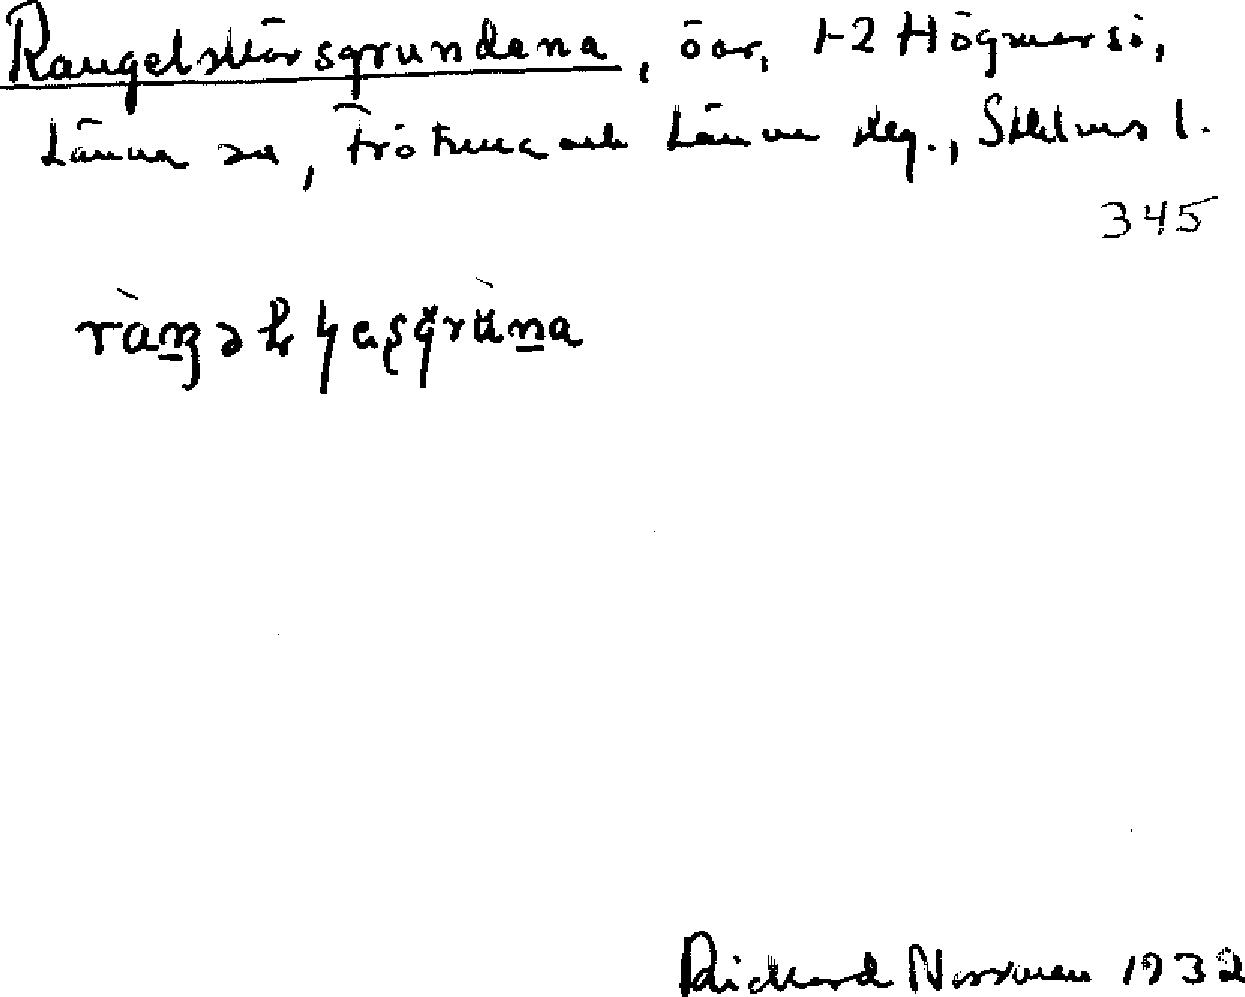 Rangelskärsgrundena, öar, 1-2 Högmarsö,
Länna sn, Frötuna och Länna skg., Sthlms l.
345
Rickard Norrman 1932